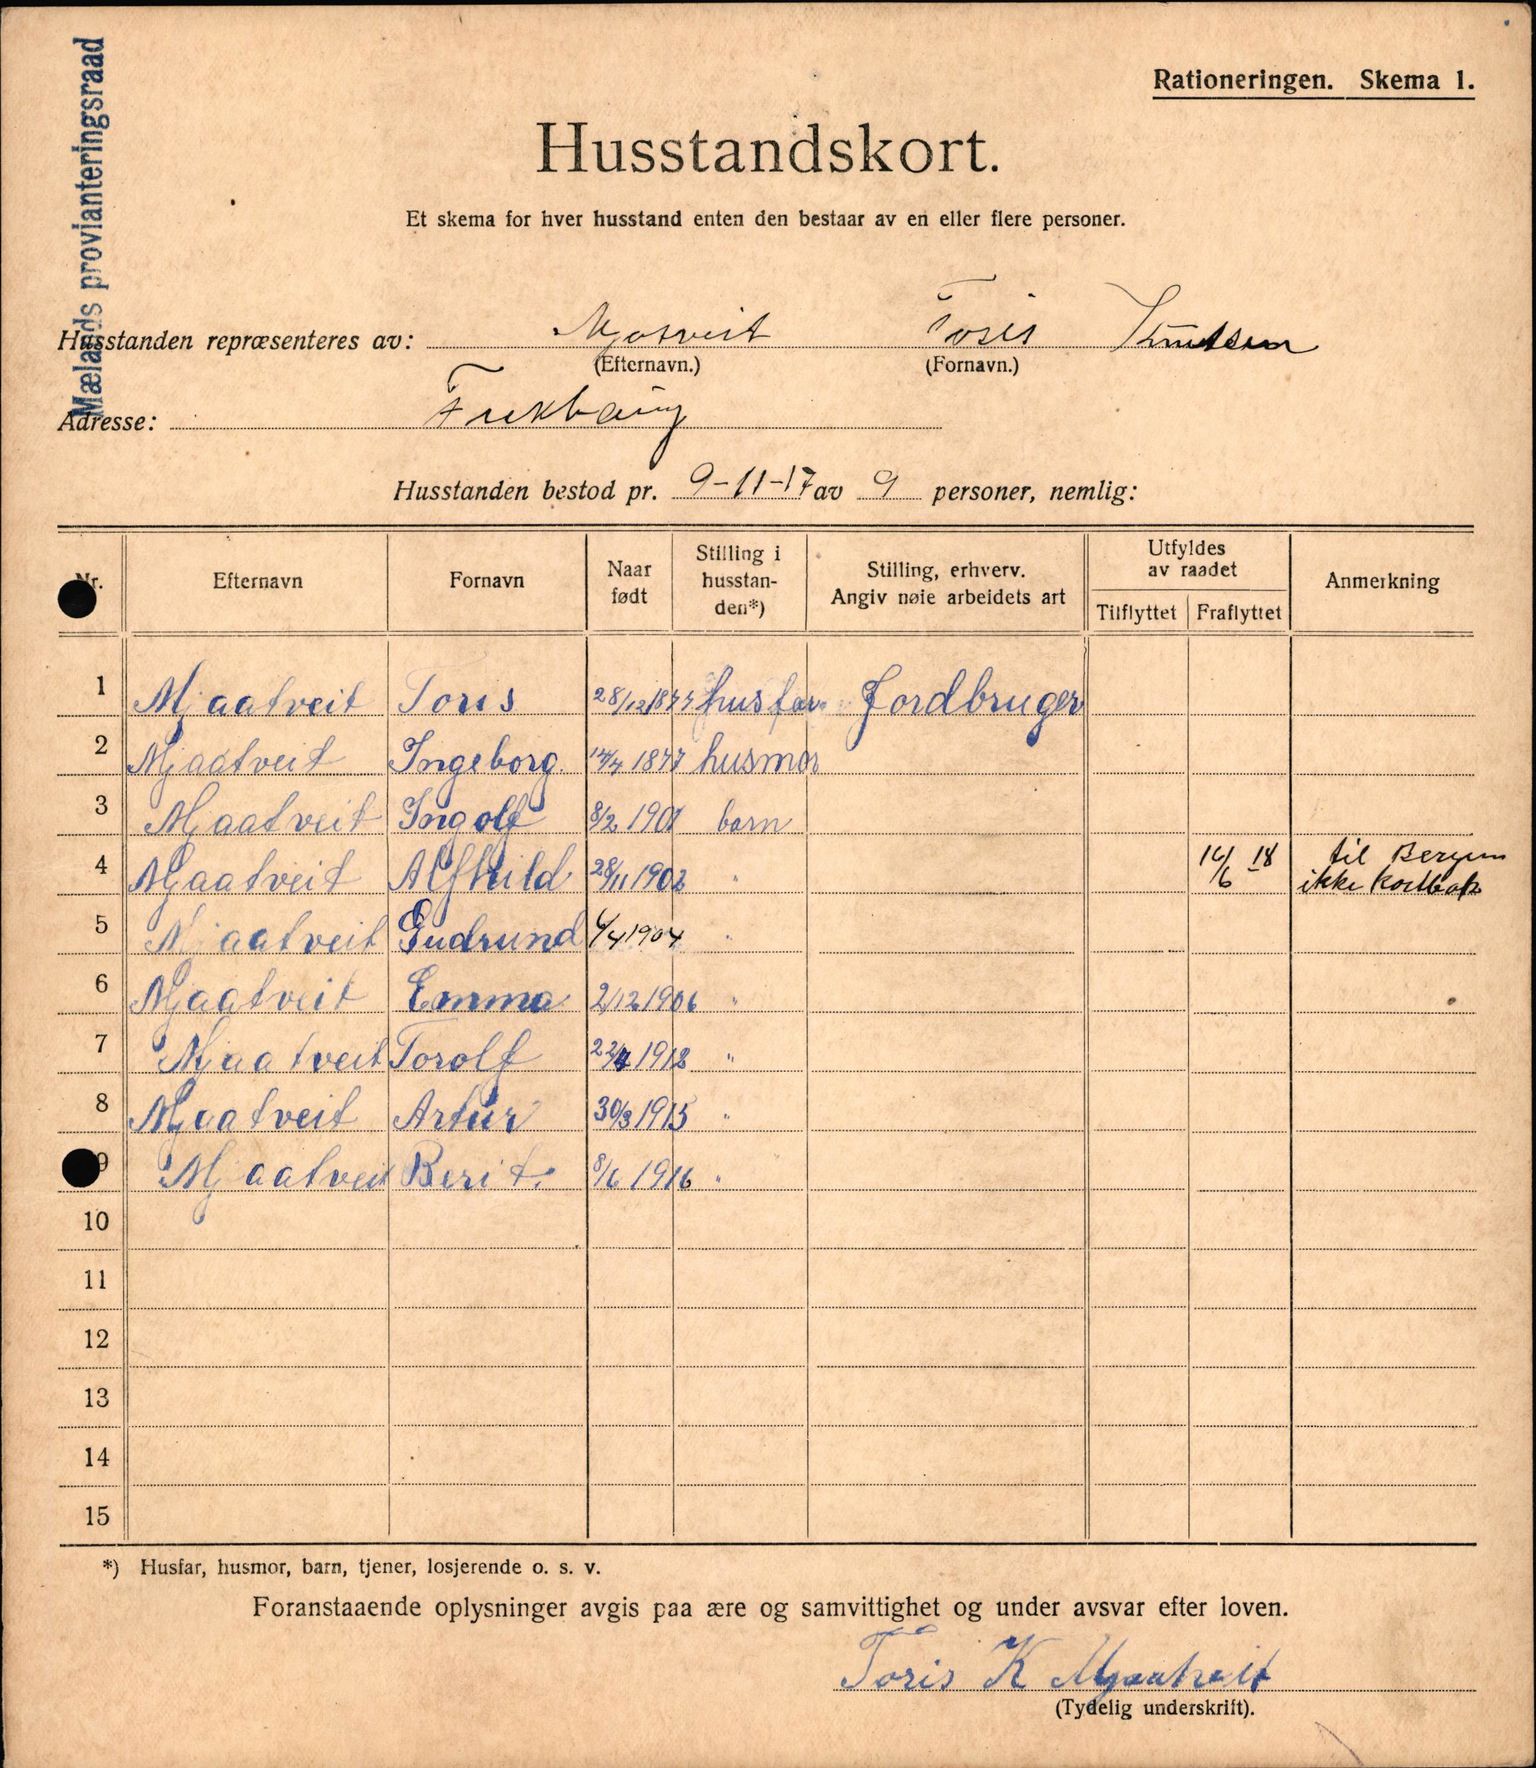 Mælands provianteringsraad
Rationeringen. Skema 1.
Husstandskort.
Et skema for hver husstand enten den bestaar av en eller flere personer.
Husstanden repræsenteres av: Mjatveit Toris Knutsen
(Efternavn.) (Fornavn.)
Adresse:
Husstanden bestod pr. 9-11-17 av 9 personer, nemlig:
Nr. Efternavn Fornavn Naar født Stilling i husstan-den*) Stilling, erhverv. Angiv nøie arbeidets art Utfyldes av raadet Tilflyttet Fraflyttet Anmerkning
1 Mjaatveit Toris 28/12 1877 husfar Jordbruger
2 Mjaatveit Ingeborg 1877 husmor
3 Mjaatveit Ingolf 8/2 1901 barn
4 Mjaatveit Alfhild 28/11 1902 " 16/6 18 til Bergen ikke kortbok
5 Mjaatveit Gudrund 6/4 1904 "
6 Mjaatveit Emma 2/12 1906 "
7 Mjaatveit Torolf 22/4 1912 "
8 Mjaatveit Artur 30/3 1915 "
9 Mjaatveit Berit. 8/6 1916 "
10
11
12
13
14
15
*) Husfar, husmor, barn, tjener, losjerende o. s. v.
Foranstaaende oplysninger avgis paa ære og samvittighet og under avsvar efter loven.
Toris K Mjaatveit
(Tydelig underskrift).